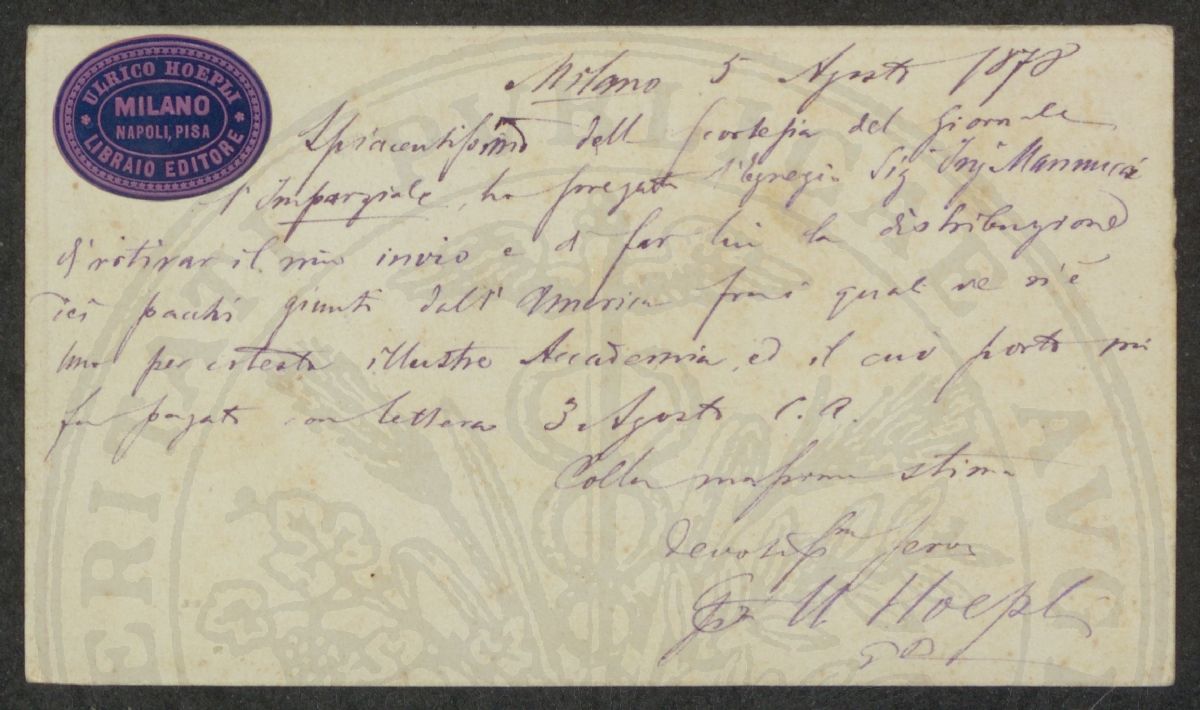 ULRICO HOEPLI
MILANO
NAPOLI, PISA
LIBRAIO EDITORE
Milano 5 Agosto 1878
Spiacentissimo dell scortesia del giornale
l'Imparziale, ho pregato l'Egregio Sig Ing Mannucci
di ritirar il mio invio e di far lui la distribuzione
dei pacchi giunti dall' America frai quali ve n'è
uno per cotesta illustre Accademia, ed il cui porto mi
fu pagato con lettera 3 Agosto C. a.
Colla massima stima
devotissm servo
U. Hoepli
VTILITATE
AVG
ERICAT